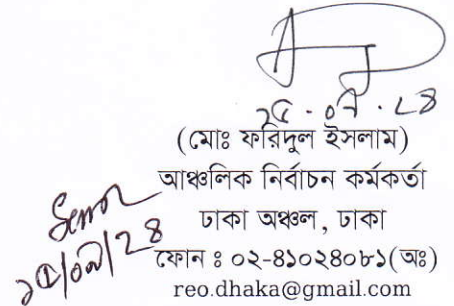 ২৫.০৭.২৪
(মোঃ ফরিদুল ইসলাম)
আঞ্চলিক নির্বাচন কর্মকর্তা
ঢাকা অঞ্চল, ঢাকা
ফোন ঃ ০২-৪১০২৪০৮১(অঃ)
reo.dhaka@gmail.com